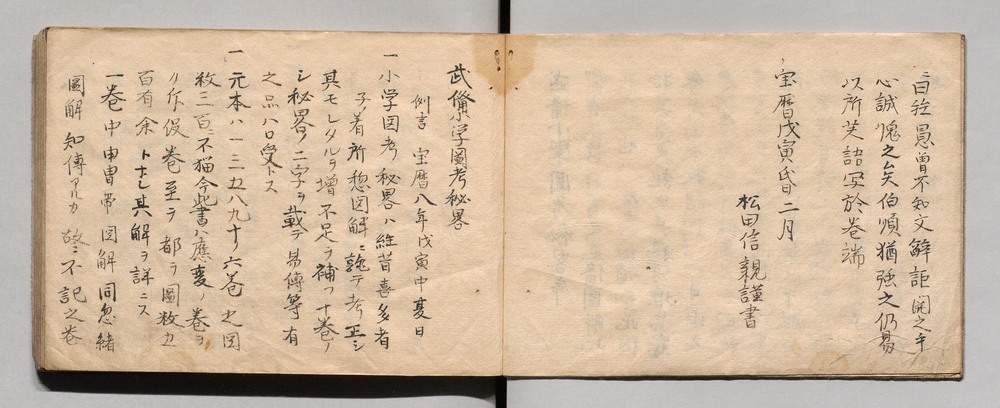 言拙愚曽不知文辞詎開之乎
心誠愧之矣伯順猶強之仍
以所芙語写於巻端
宝暦戊寅春二月
松田信親謹書
武備小学圖考秘畧
例言 宝暦八年戊寅中夏日
一小学図考秘畧ハ維昔喜多者
子着所図解ニ就テ考正シ
其モレタルヲ増不足ヲ補フ十巻ノ
シ秘畧ノ二字ヲ載テ易傳等有
之品ハ口受トス
一元本ハ一三五八九十ノ六巻也図
紋三百ニ不猫今此書ハ應変ノ巻ヲ
作仮巻至ラ都ヲ圖数九
百有余トナシ其解ヲ詳ニス
一巻中甲冑帯図解同忽緒
圖解知傳アルカ不記之巻